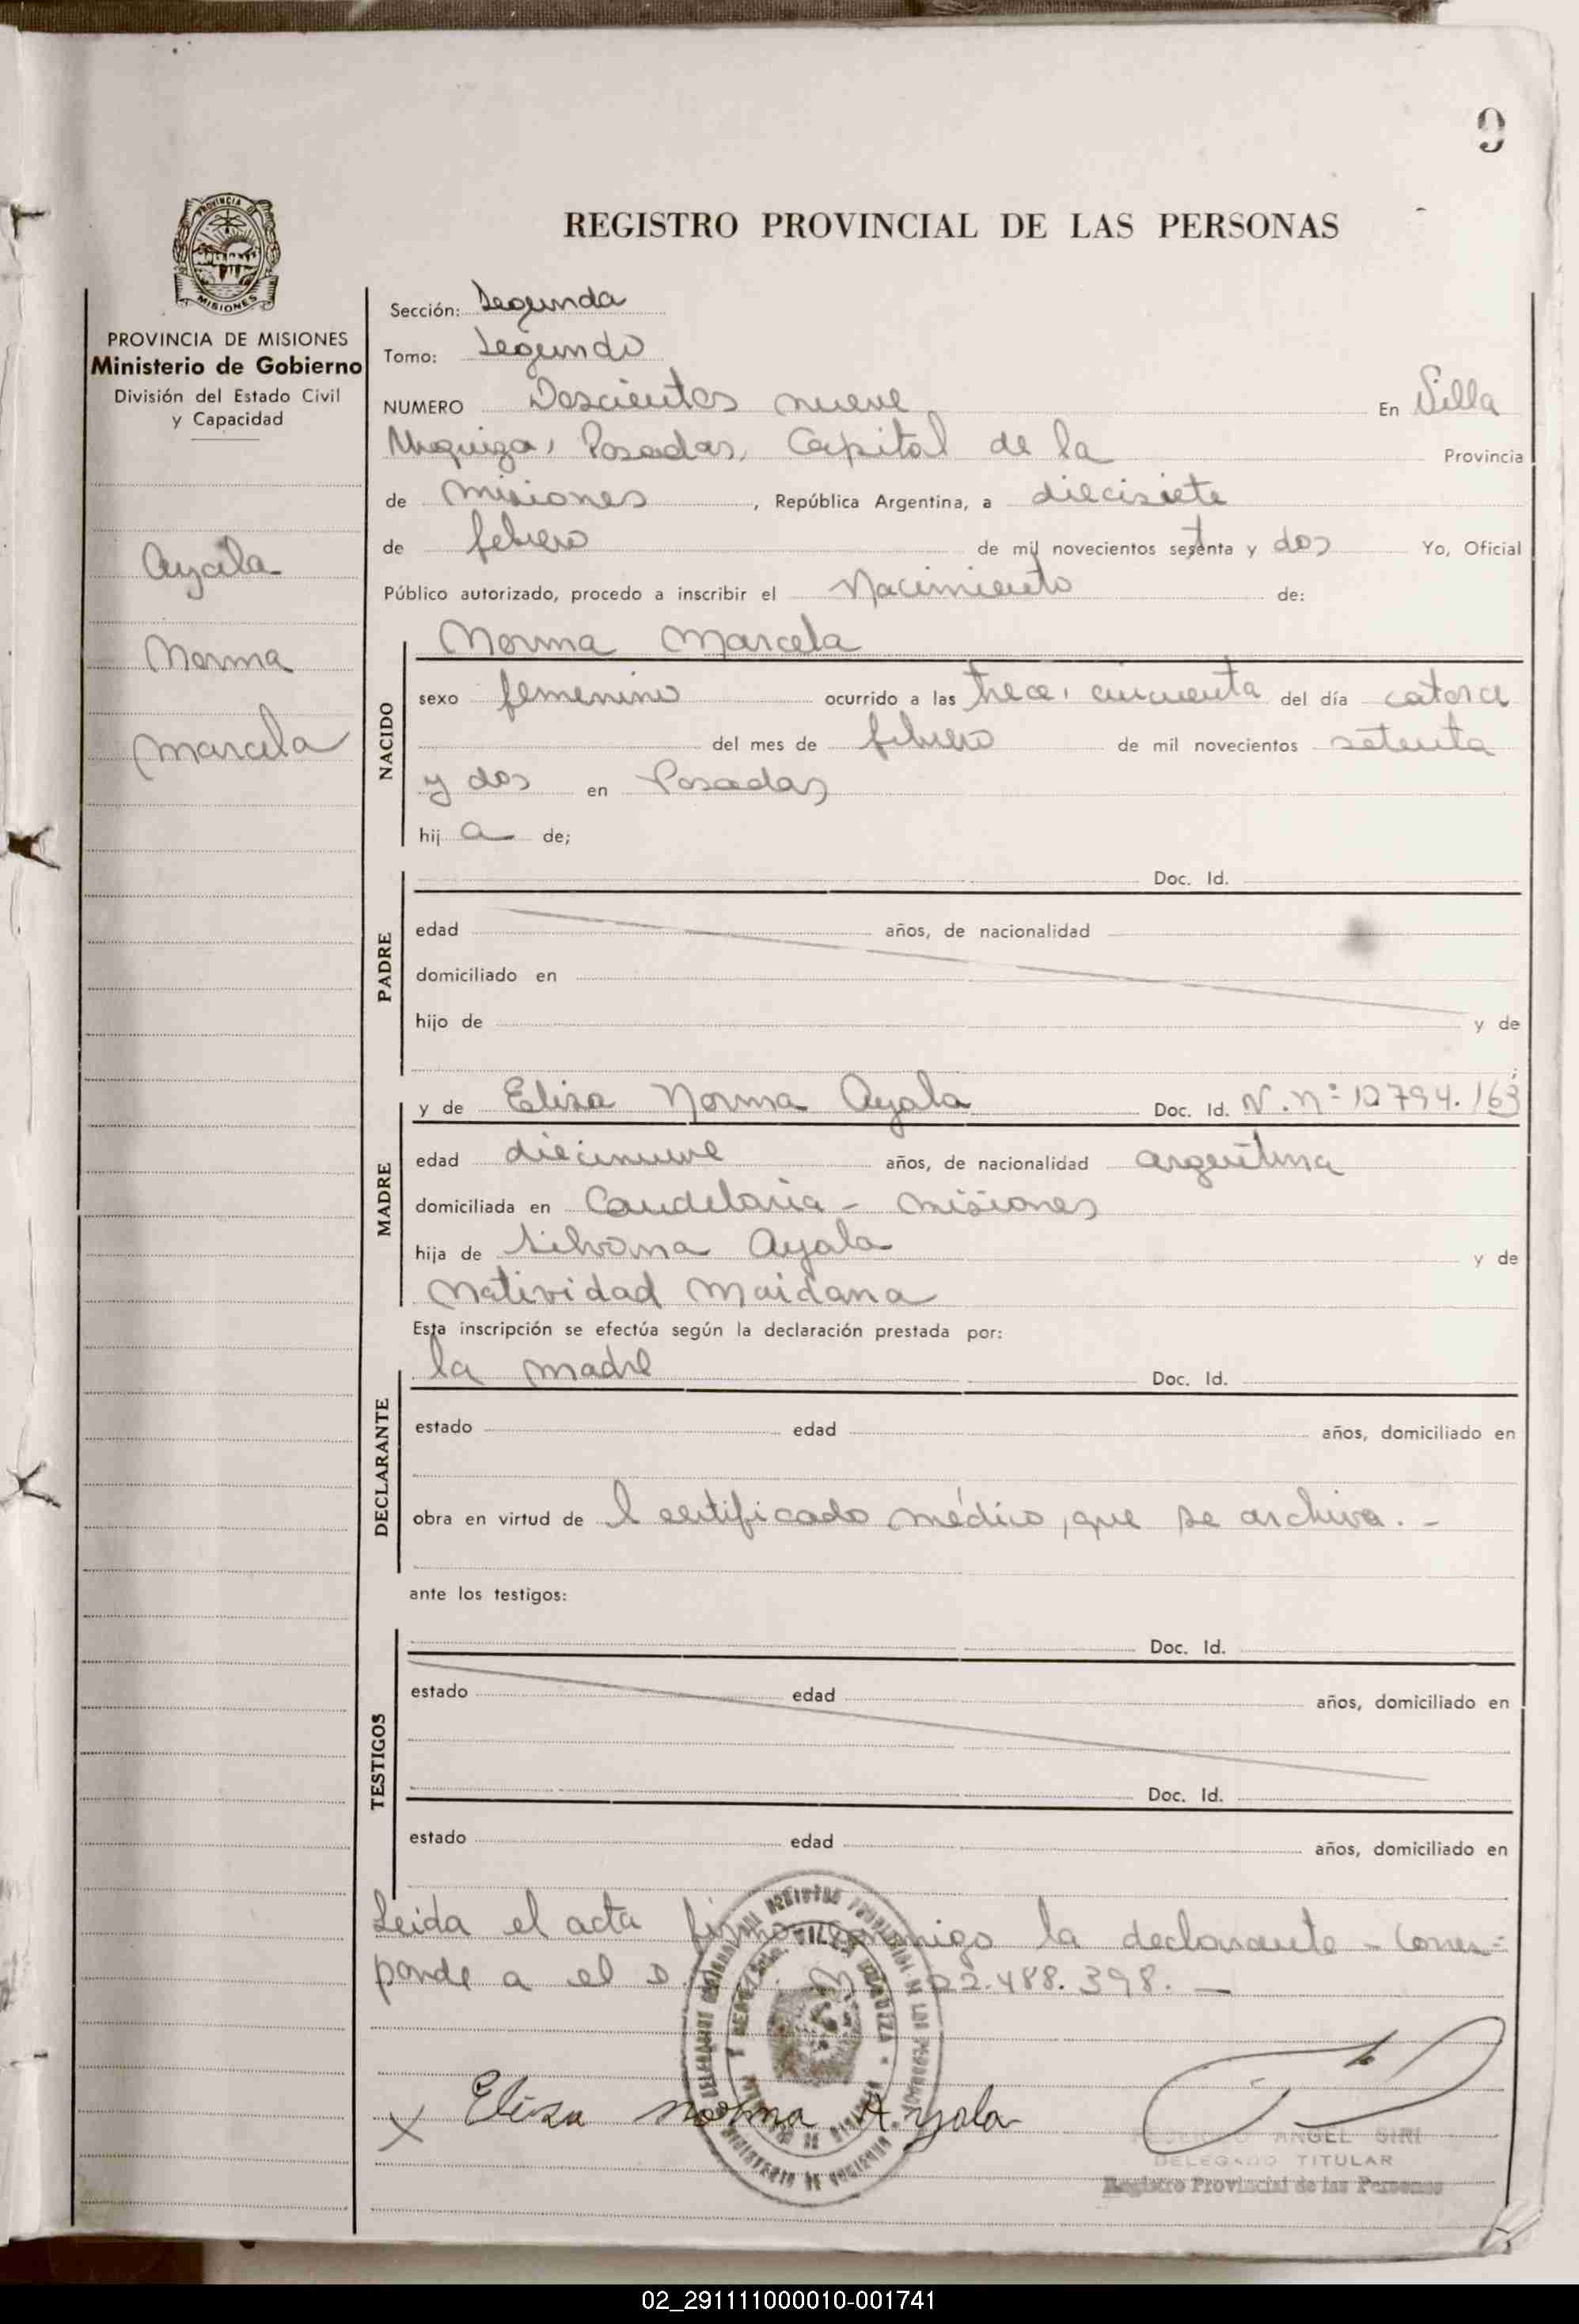 9
REGISTRO PROVINCIAL DE LAS PERSONAS
PROVINCIA DE
MISIONES
PROVINCIA DE MISIONES
Ministerio de Gobierno
División del Estado Civil
y Capacidad
Ayala
Norma
Marcela
Sección: Segunda
Tomo: Segundo
NUMERO Doscientos nueve En Villa
Urquiza, Posadas, Capital de la Provincia
de Misiones, República Argentina, a diecisiete
de febrero de mil novecientos setenta y dos Yo, Oficial
Público autorizado, procedo a inscribir el Nacimiento de:
NACIDO
Norma Marcela
sexo femenino ocurrido a las trece, cincuenta del día catorce
del mes de febrero de mil novecientos setenta
y dos en Posadas
hij a de;
PADRE
Doc. Id.
edad años, de nacionalidad
domiciliado en
hijo de y de
MADRE
y de Elisa Norma Ayala Doc. Id. N. nº 12794.163
edad diecinueve años, de nacionalidad argentina
domiciliada en Candelaria - Misiones
hija de Silvana Ayala y de
Natividad Maidana
Esta inscripción se efectúa según la declaración prestada por:
DECLARANTE
la madre Doc. Id.
estado edad años, domiciliado en
obra en virtud de l certificado médico, que se archiva. -
ante los testigos:
TESTIGOS
Doc. Id.
estado edad años, domiciliado en
Doc. Id.
estado edad años, domiciliado en
Leida el acta firma conmigo la declarante - Corres=
ponde a el D. 22.488.398. —
x Elisa norma Ayala
ANGEL SIRI
DELEGADO TITULAR
Registro Provincial de las Personas
02_291111000010-001741